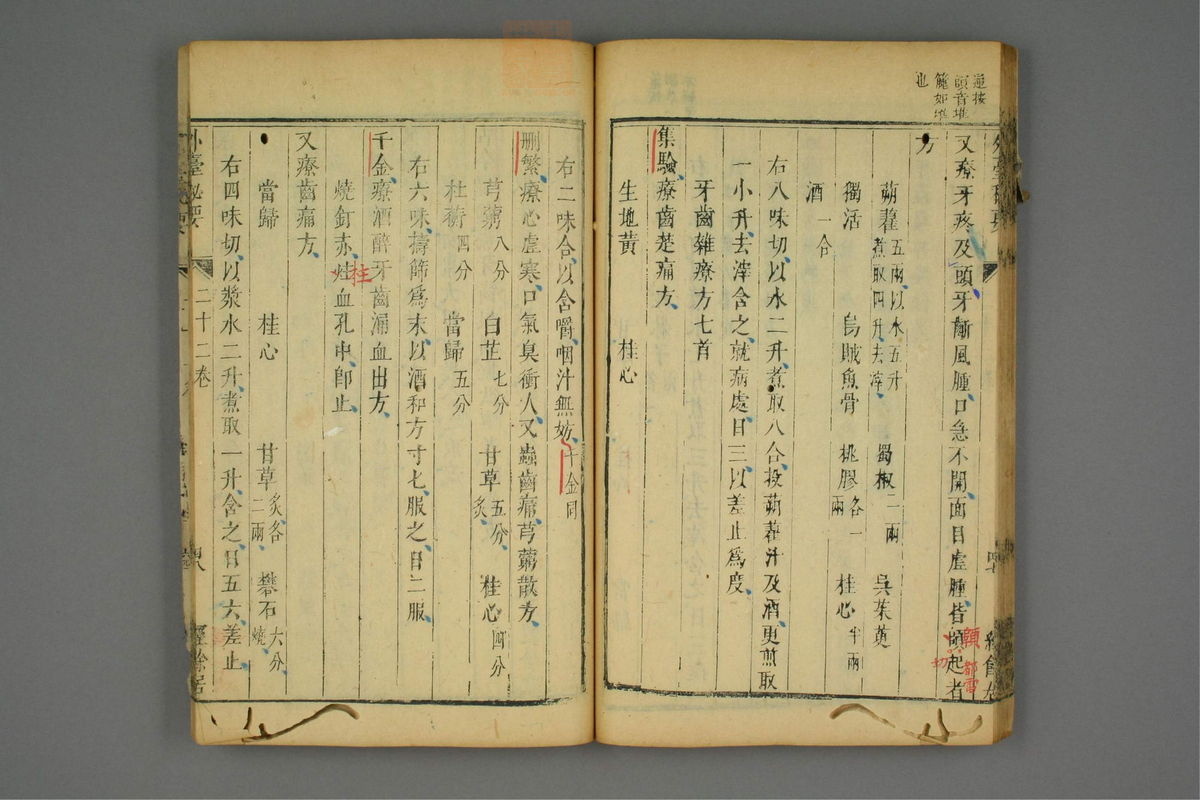 又療牙疼及頭牙齗風腫口急不開面目虛腫皆㿉起者
方
蒴藋五兩以水五升煮取四升去滓 蜀椒二兩 吳茱萸
獨活 烏賊魚骨 桃膠各一兩 桂心半兩
酒一合
右八味切以水二升煮取八合投蒴藋汁及酒更煎取
一小升去滓含之就病處日三以差止爲度
牙齒雜療方七首
集驗療齒楚痛方
生地黃 桂心
右二味合以含嚼咽汁無妨千金同
刪繁療心虛寒口氣臭衝人又蟲齒痛芎藭散方
芎藭八分 白芷七分 甘草五分炙 桂心四分
杜蘅四分 當歸五分
右六味擣篩爲末以酒和方寸匕服之日二服
千金療酒醉牙齒漏血出方
燒釘赤炷血孔中卽止
柱
又療齒痛方
當歸 桂心 甘草炙各二兩 礬石六分燒
右四味切以漿水二升煮取一升含之日五六差止
外臺秘要 二十二卷 四八 經餘居